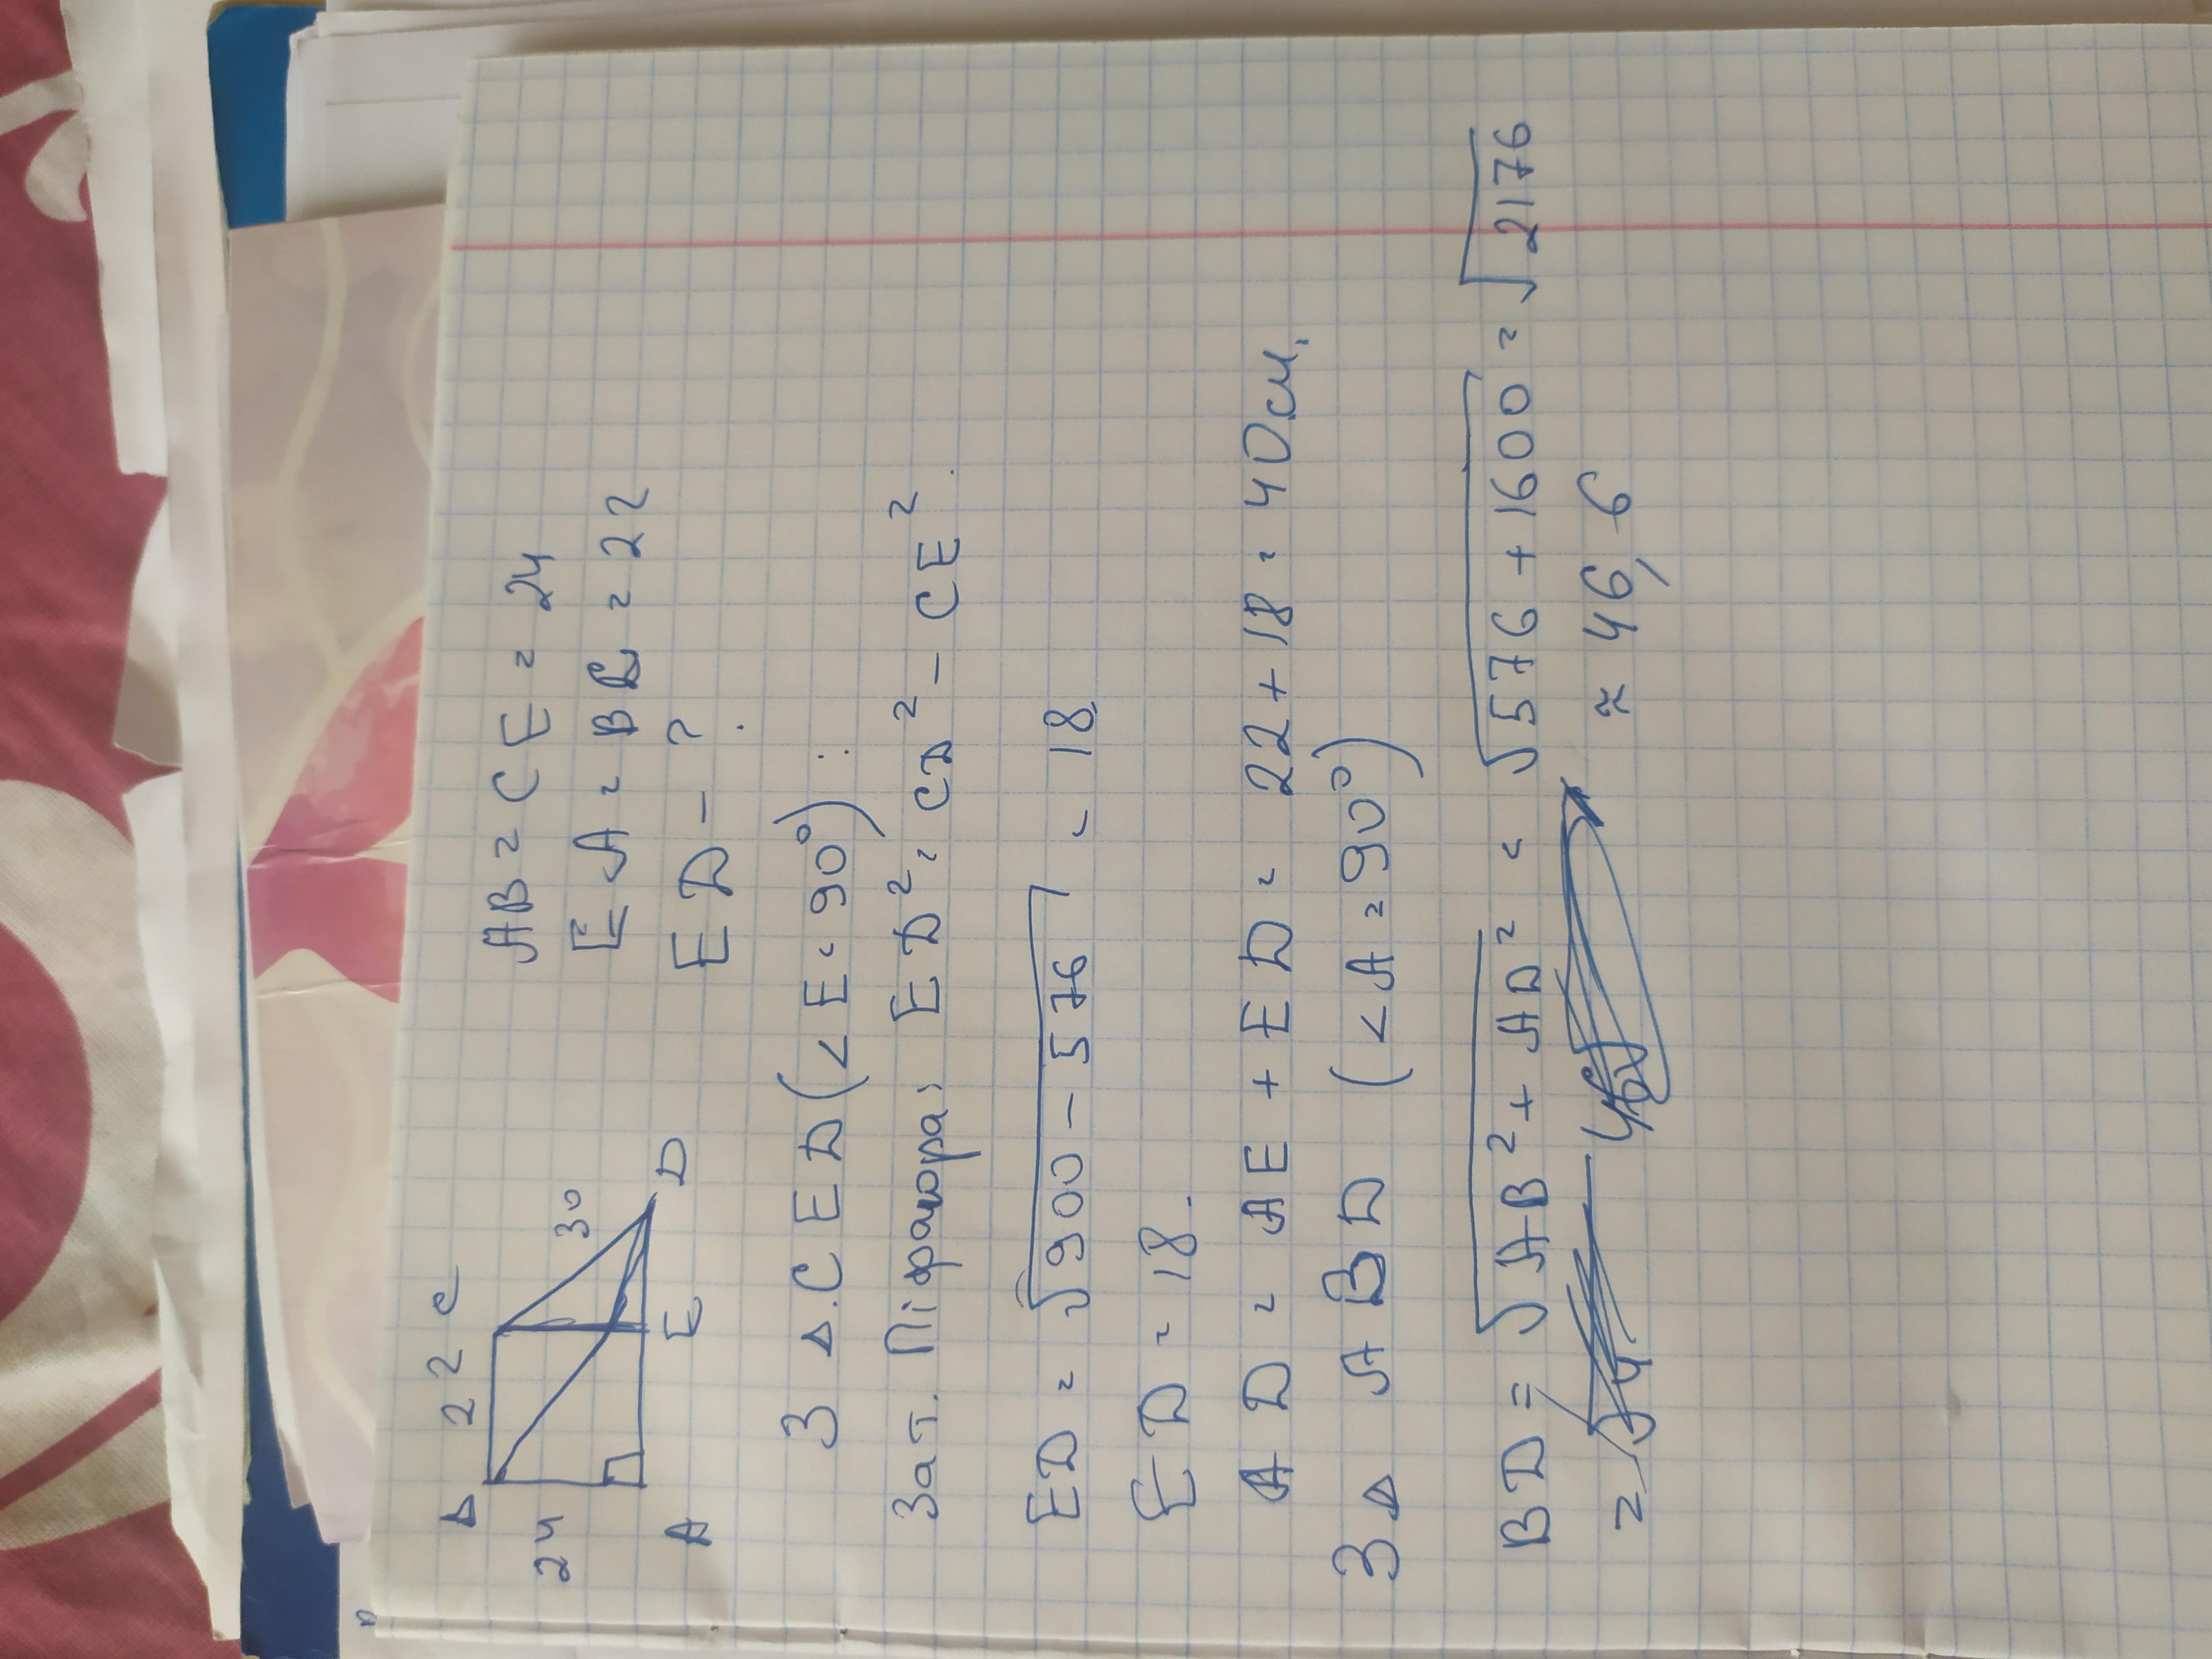 B 22 C
24
30
A E D
AB = CE = 24
EA = BC = 22
ED - ?
З △ CED (∠E = 90°):
Зат. Піфагора: ED² = CD² - CE².
ED = √900 - 576 = 18
ED = 18.
AD = AE + ED = 22 + 18 = 40 см.
З △ ABD (∠A = 90°)
BD = √AB² + AD² = √576 + 1600 = √2176
≈ 46,6